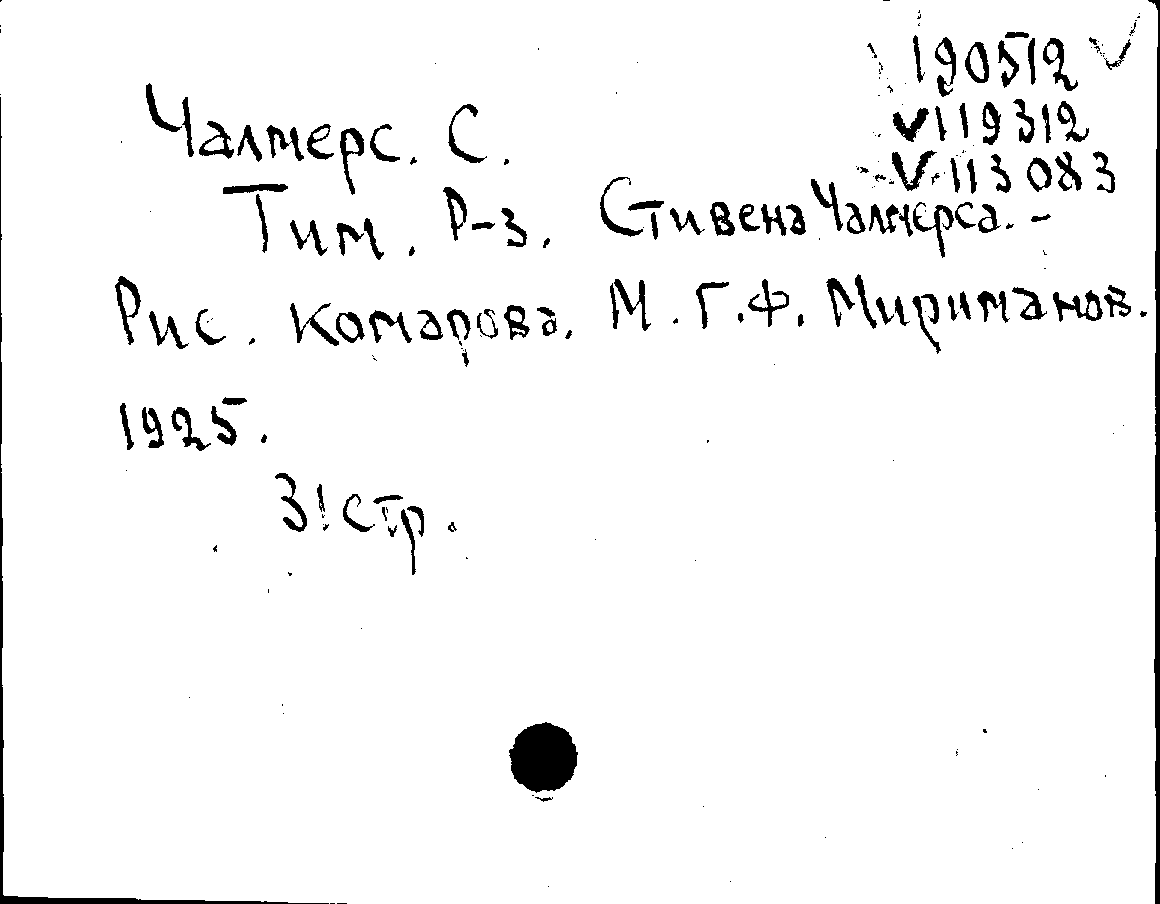 190512 ✓
✓119312
✓113083
Чалмерс. С.
Тим. Р-з. Стивена Чалмерса. -
Рис. Комарова. М. Г.Ф. Мириманов.
1925.
31 стр.